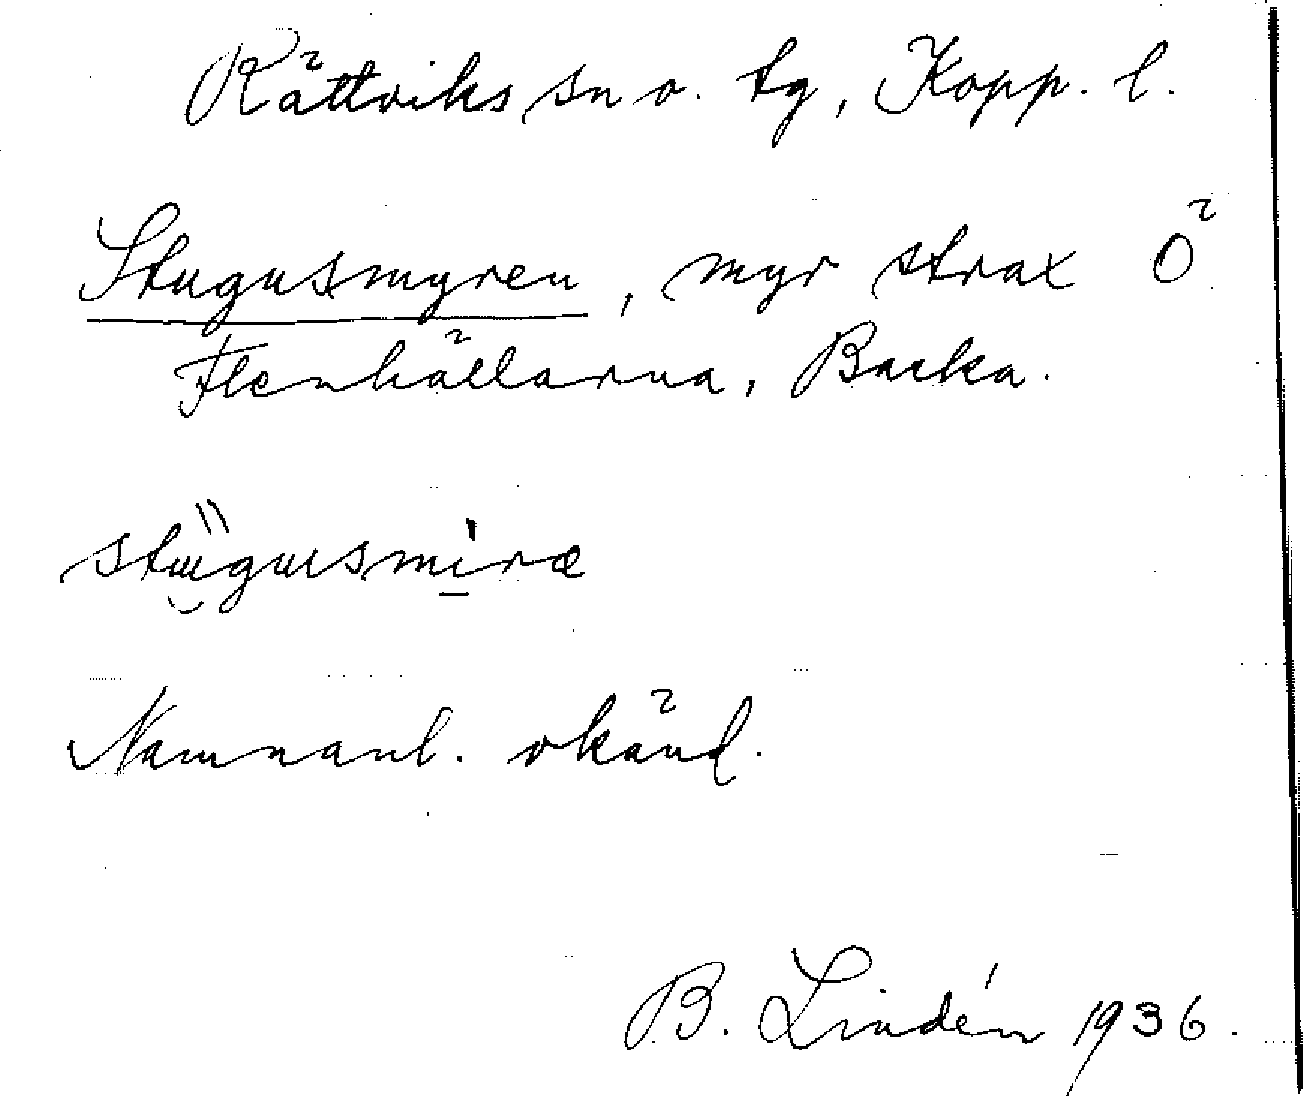 Rättviks sn o. tg, Kopp. l.
Stugusmyren, myr strax Ö
Flenhällarna, Backa.
Namnanl. okänd.
B. Lindén 1936.